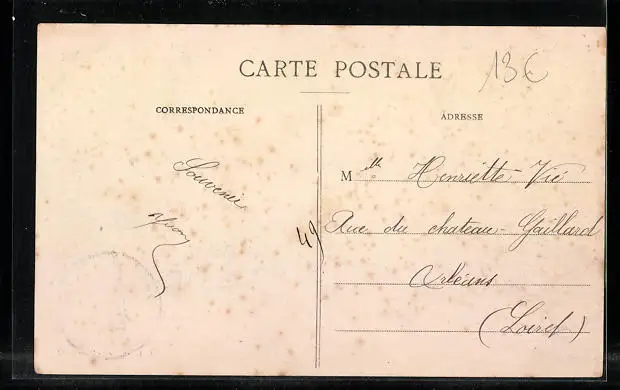 CARTE POSTALE
13€
CORRESPONDANCE
ADRESSE
Souvenir
Melle Henriette Vié
49 Rue du chateau-Gaillard
Orléans
(Loiret)